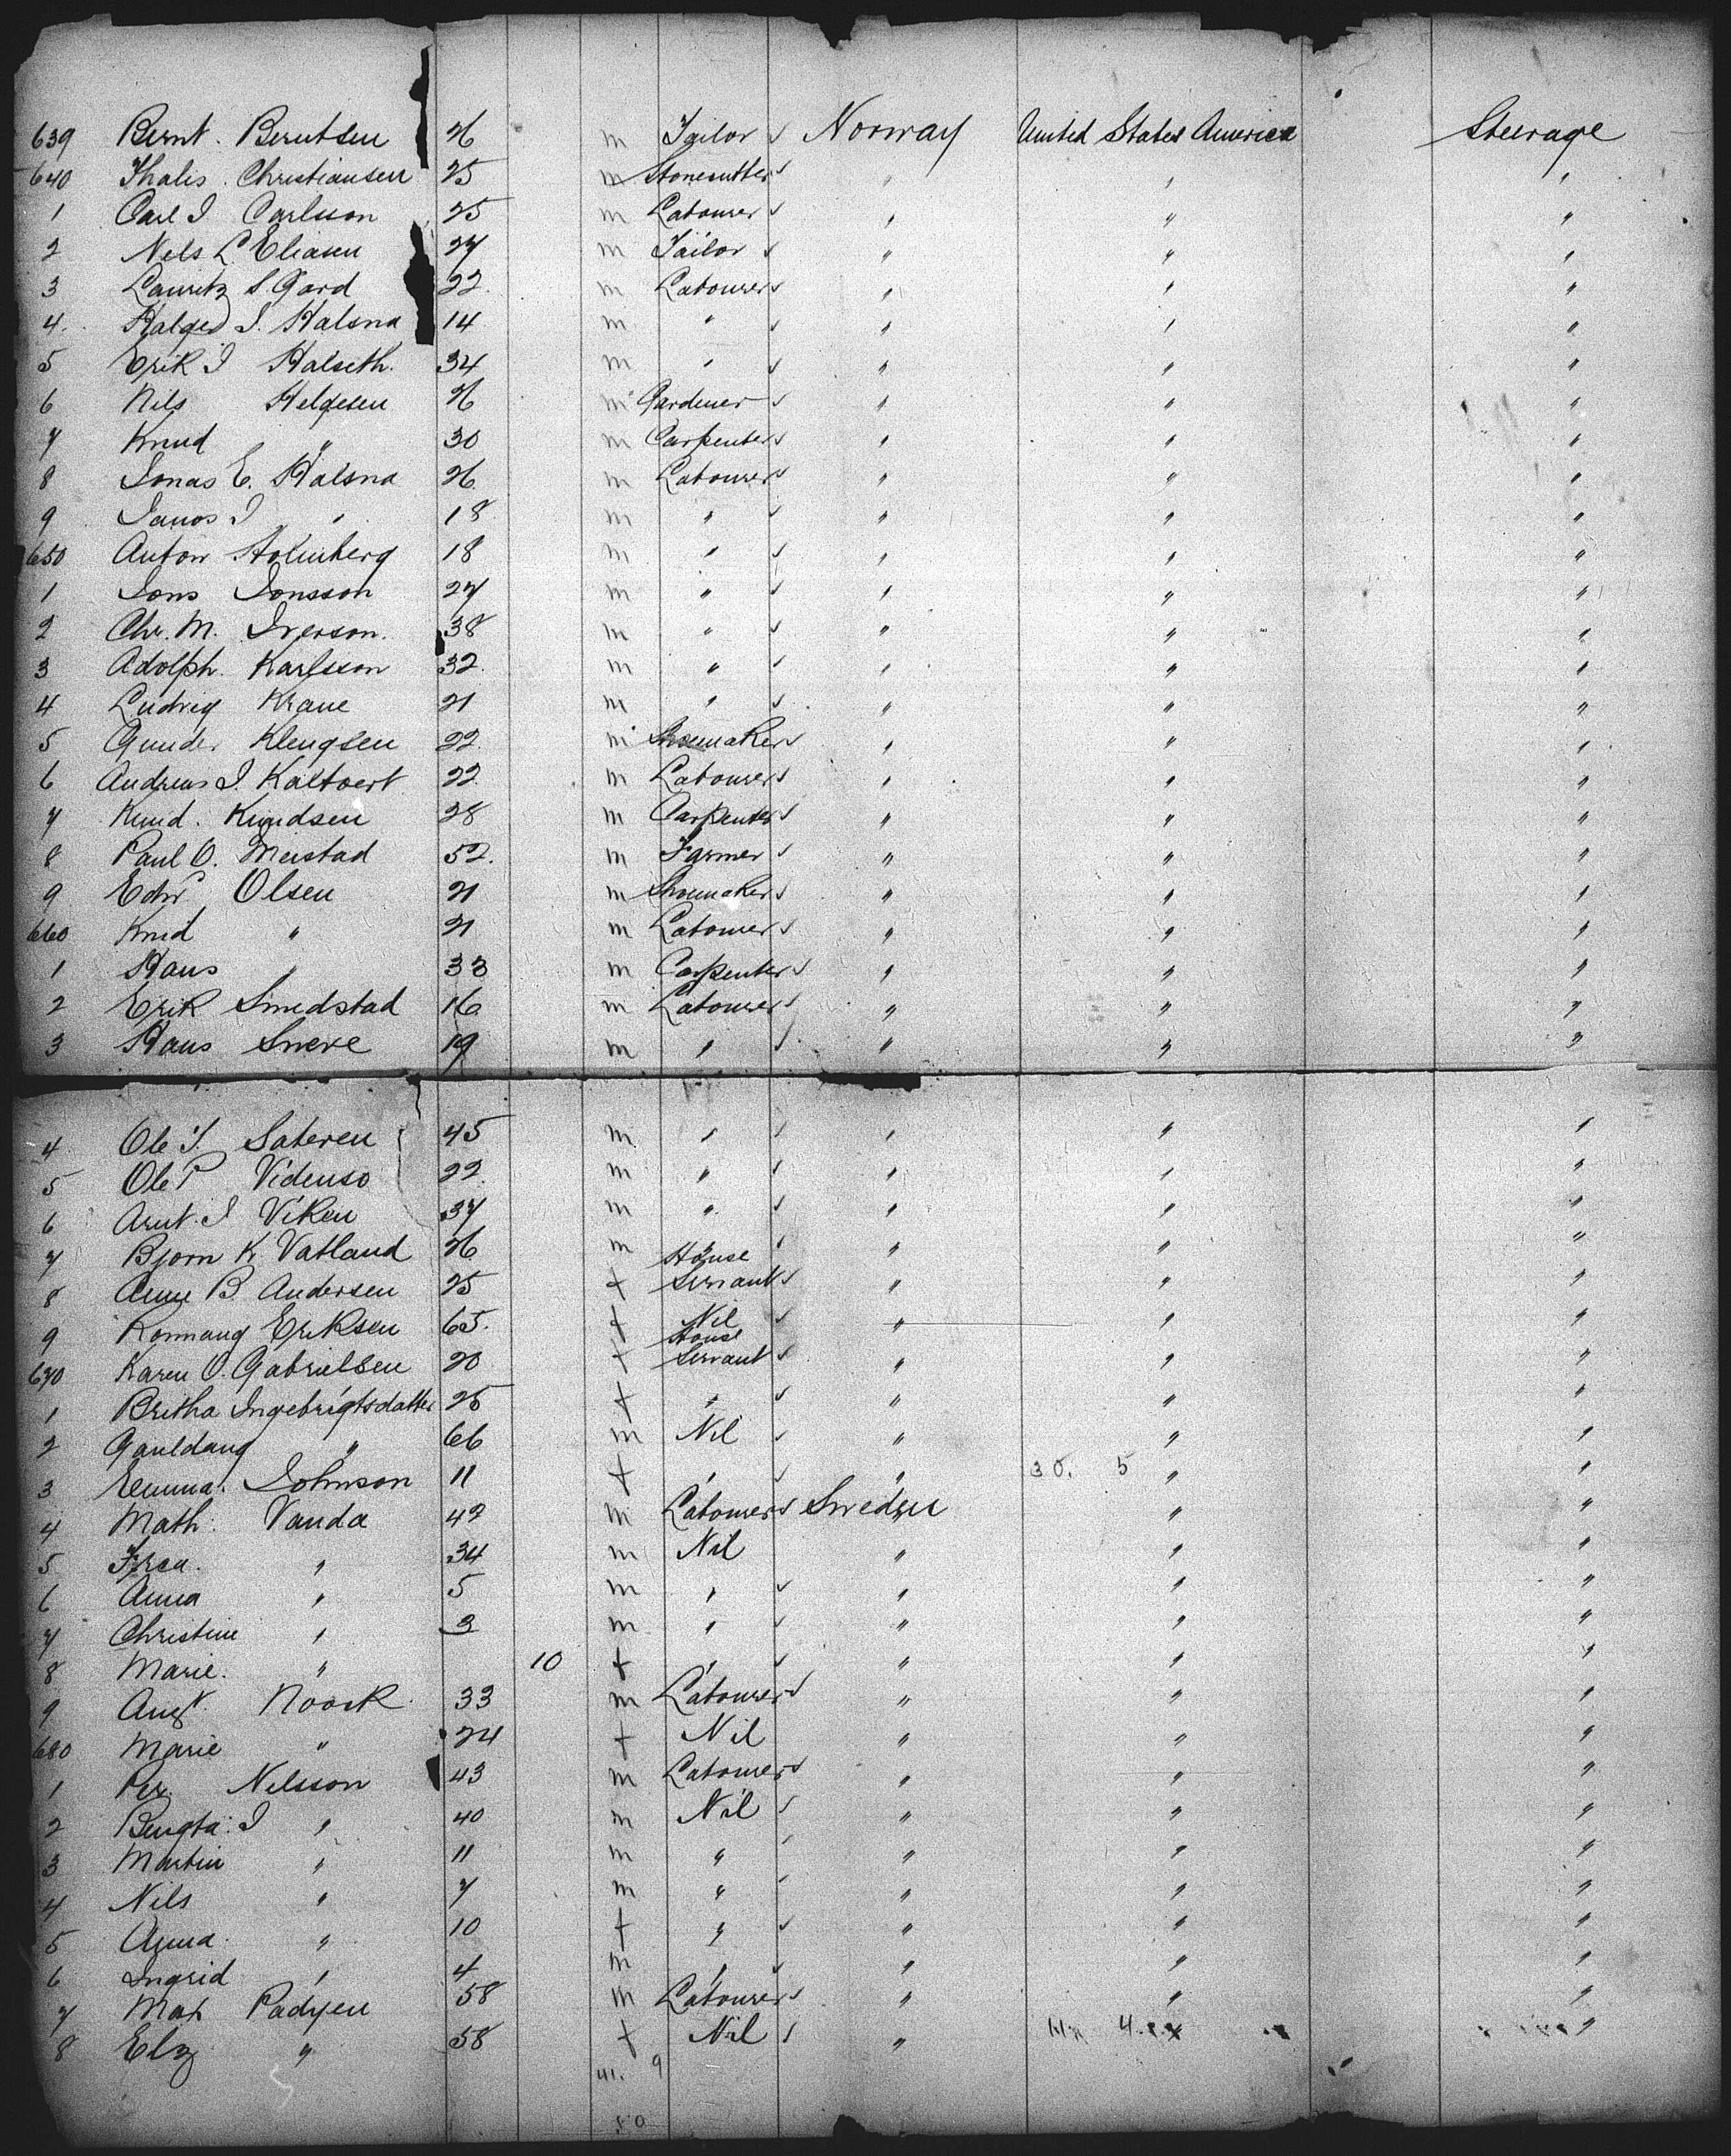 639 Bernt. Berntsen 26 m Tailor s Norway United States America Steerage
640 Thalis. Christiansen 25 m Stonecutter s " " "
1 Carl I Carlsson 25 m Labourer s " " "
2 Nels L Eliasen 27 m Tailor s " " "
3 Lauritz S. Gard 22. m Labourer s " " "
4. Halged I. Halsna 14 m " s " " "
5 Erik I Halseth. 34 m " s " " "
6 Nils Helgesen 26 m Gardener s " " "
7 Knud " 30 m Carpenter s " " "
8 Jonas E. Halsna 26 m Labourer s " " "
9 Janos I " 18 m " s " " "
650 Anton Holmberg 18 m " s " " "
1 Jons Jonsson 27 m " s " " "
2 Chr. M. Iverson. 38 m " s " " "
3 Adolph. Karlsson 32. m " s " " "
4 Ludvig Krane 21 m " s " " "
5 Gunder Klengsen 22. m Shoemaker s " " "
6 Andreas I. Kaltvert 22. m Labourer s " " "
7 Knud. Knudsen 28 m Carpenter s " " "
8 Paul O. Meistad 52. m Farmer s " " "
9 Edwd Olsen 21 m Shoemaker s " " "
660 Knud " 21 m Labourer s " " "
1 Hans " 33 m Carpenter s " " "
2 Erik Smedstad 16 m Labourer s " " "
3 Hans Sneve 19 m " s " " "
4 Ole I. Sateren 45 m " s " " "
5 Ole P Videnso 22. m " s " " "
6 Arnt. I Viken 37 m " s " " "
7 Bjorn K Vatland 26 m " s " " "
8 Anne B. Andersen 25 f House Servant s " " "
9 Ronnaug Eriksen 65. f Nil s " " "
670 Karen O. Gabrielsen 20 f House Servant s " " "
1 Britha Ingebrigtsdatter 25 f " s " " "
2 Gauldang " 66 m Nil s " " "
3 Emma. Johnson 11 f " s " 30. 5 " "
4 Math: Vanda 42 m Labourer s Sweden " "
5 34 m Nil " " "
6 Anna " 5 m " s " " "
7 Christine " 3 m " s " " "
8 Marie. " 10 f " s " " "
9 Augt. Noork 33 m Labourer s " " "
680 Marie " 24 f Nil " " "
1 Per. Nilsson 43 m Labourer s " " "
2 Bengta: I " 40 m Nil s " " "
3 Martin " 11 m " " " "
4 Nils " 7 m " " " "
5 Anna. " 10 f " s " " "
6 Ingrid " 4 m " s " " "
7 Mat Padyen 58 m Labourer s " " "
8 Elz " 58 f Nil s " " "
41. 9
50